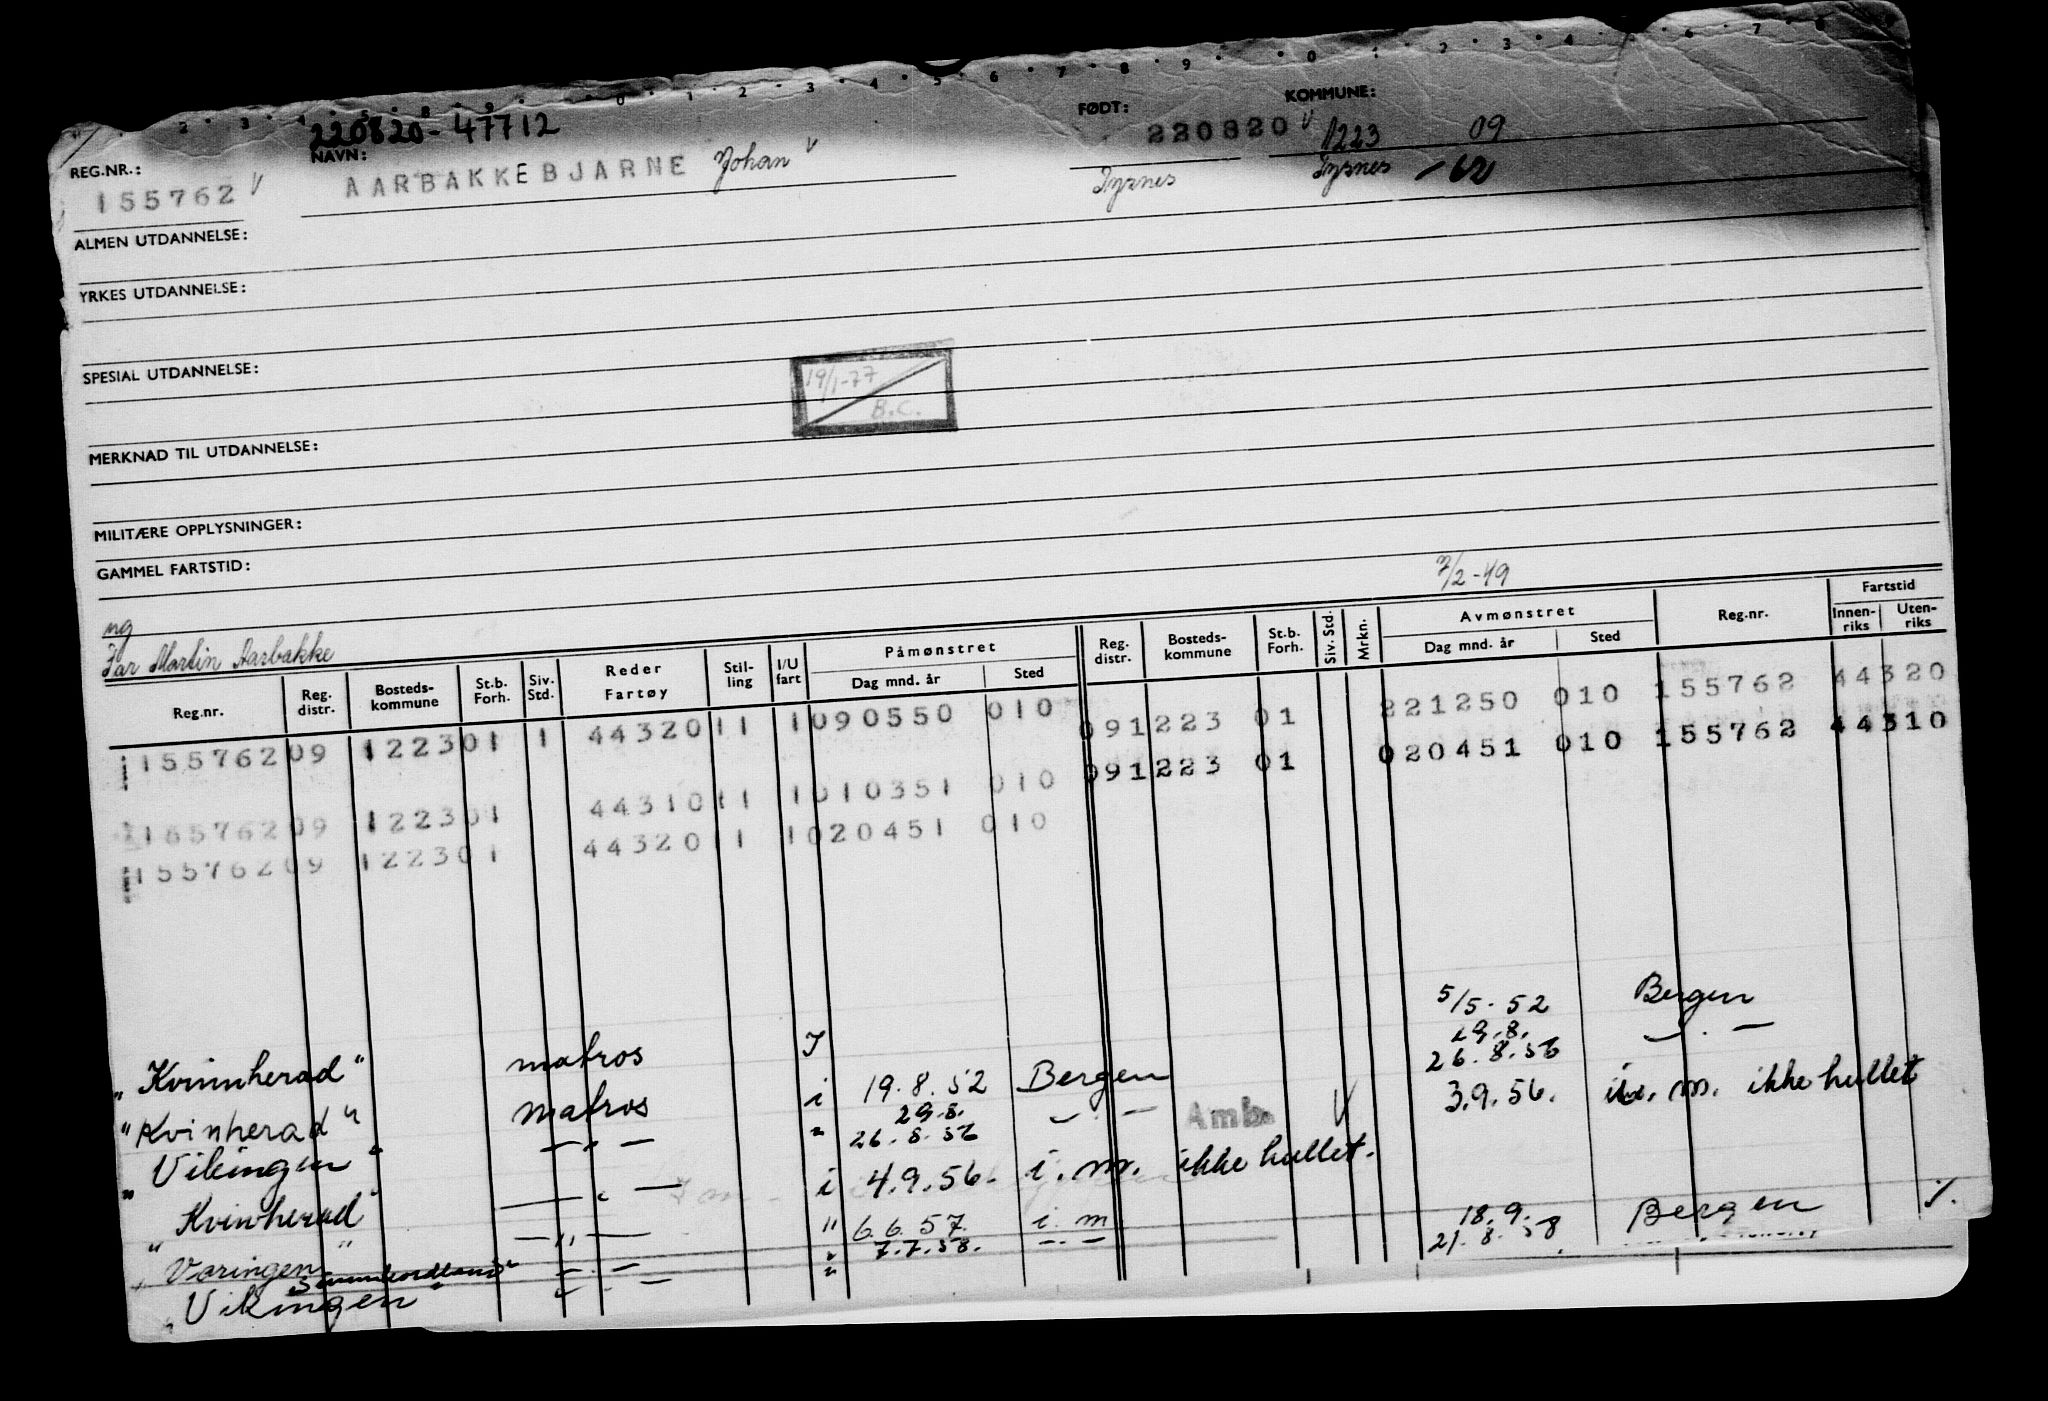 220820-47712
REG.NR.: NAVN: FØDT: KOMMUNE:
155762 V AARBAKKE BJARNE Johan V 220820 V 1223 09
Tysnes Tysnes -62
ALMEN UTDANNELSE:
YRKES UTDANNELSE:
SPESIAL UTDANNELSE:
19/1-77
B.C.
MERKNAD TIL UTDANNELSE:
MILITÆRE OPPLYSNINGER:
GAMMEL FARTSTID:
7/2-49
ng
Far Martin Aarbakke
Reg.nr. Reg. distr. Bosteds-kommune St.b. Forh. Siv. Std. Reder Fartøy Stil-ling I/U fart Påmønstret Dag mnd. år Sted Reg. distr. Bosteds-kommune St.b. Forh. Siv. Std. Mrkn. Avmønstret Dag mnd. år Sted Reg.nr. Fartstid Innen-riks Uten-riks
155762 09 1223 01 1 44320 11 1 090550 010 09 1223 01 221250 010 155762 44320
155762 09 1223 01 44310 11 1 010351 010 09 1223 01 020451 010 155762 44310
155762 09 1223 01 44320 11 1 020451 010
"Kvinnherad" matros I 5/5-52 Bergen
"Kvinherad" matros i 19.8.52 Bergen 29.8. — . —
"Vikingen" — " — " 29.8. — . — 26.8.56
26.8.56 Amb. V 3.9.56. i. m. ikke hullet
"Kvinherad" — " — i 4.9.56. i. m. ikke hullet.
"Væringen" — " — " 6.6.57. i. m 18.9. Bergen
"Sunnhordland" — " — " 7.7.58. — . — 21.8.58
"Vikingen" — " — "